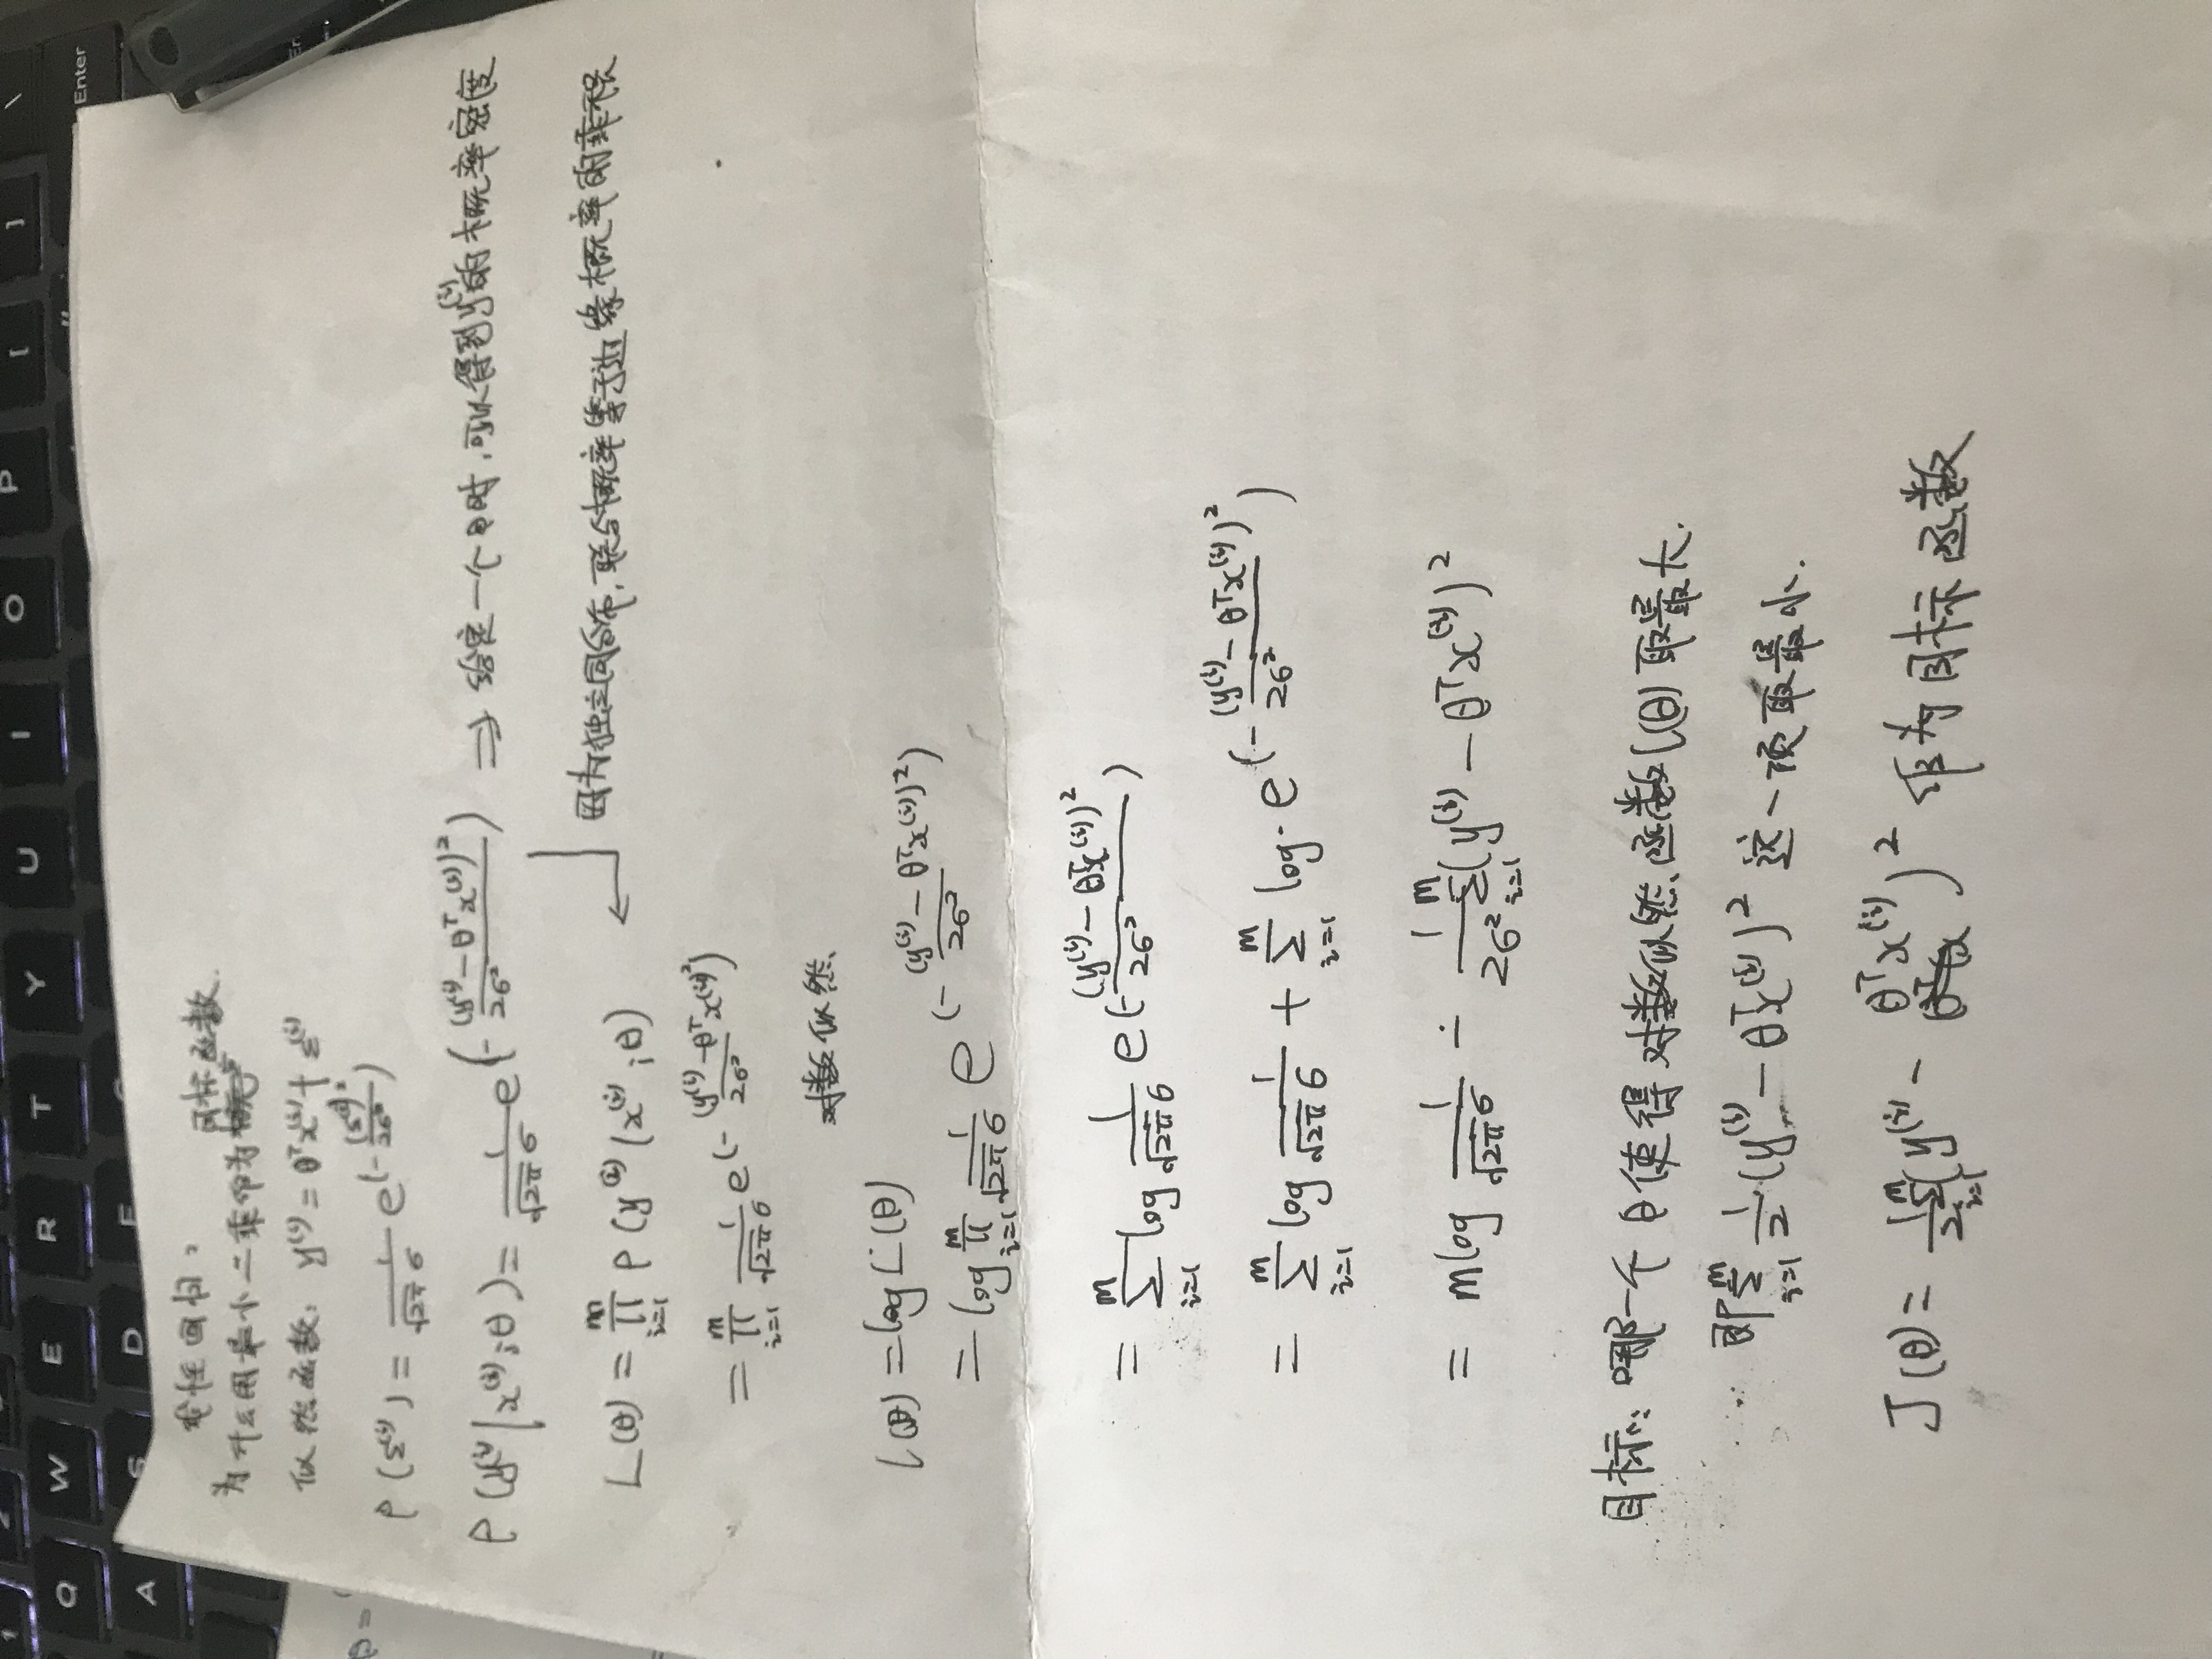 线性回归:
为什么用最小二乘作为目标函数.
似然函数: y⁽ⁱ⁾ = θᵀx⁽ⁱ⁾ + ε⁽ⁱ⁾
P(ε⁽ⁱ⁾) = 1/(√2π σ) e(-(ε⁽ⁱ⁾)²/2σ²)
P(y⁽ⁱ⁾|x⁽ⁱ⁾;θ) = 1/(√2π σ) e(-(y⁽ⁱ⁾-θᵀx⁽ⁱ⁾)²/2σ²) ⇒ 给定一个θ时,可以得到y⁽ⁱ⁾的概率密度
因为独立同分布,联合概率等于边缘概率的乘积
L(θ) = ∏ᵢ₌₁ᵐ P(y⁽ⁱ⁾|x⁽ⁱ⁾;θ)
= ∏ᵢ₌₁ᵐ 1/(√2π σ) e(-(y⁽ⁱ⁾-θᵀx⁽ⁱ⁾)²/2σ²)
对数似然
l(θ) = log L(θ)
= log ∏ᵢ₌₁ᵐ 1/(√2π σ) e(-(y⁽ⁱ⁾-θᵀx⁽ⁱ⁾)²/2σ²)
= ∑ᵢ₌₁ᵐ log 1/(√2π σ) e(-(y⁽ⁱ⁾-θᵀx⁽ⁱ⁾)²/2σ²)
= ∑ᵢ₌₁ᵐ log 1/(√2π σ) + ∑ᵢ₌₁ᵐ log·e(-(y⁽ⁱ⁾-θᵀx⁽ⁱ⁾)²/2σ²)
= m log 1/(√2π σ) - 1/2σ² ∑ᵢ₌₁ᵐ (y⁽ⁱ⁾-θᵀx⁽ⁱ⁾)²
目标: 哪一个θ使得对数似然函数l(θ)取最大.
即∑ᵢ₌₁ᵐ 1/2 (y⁽ⁱ⁾-θᵀx⁽ⁱ⁾)² 这一项取最小.
J(θ) = 1/2 ∑ᵢ₌₁ᵐ (y⁽ⁱ⁾-θᵀx⁽ⁱ⁾)² 作为目标函数
\ Enter
] [ P O I U Y T R E W Q
D S A